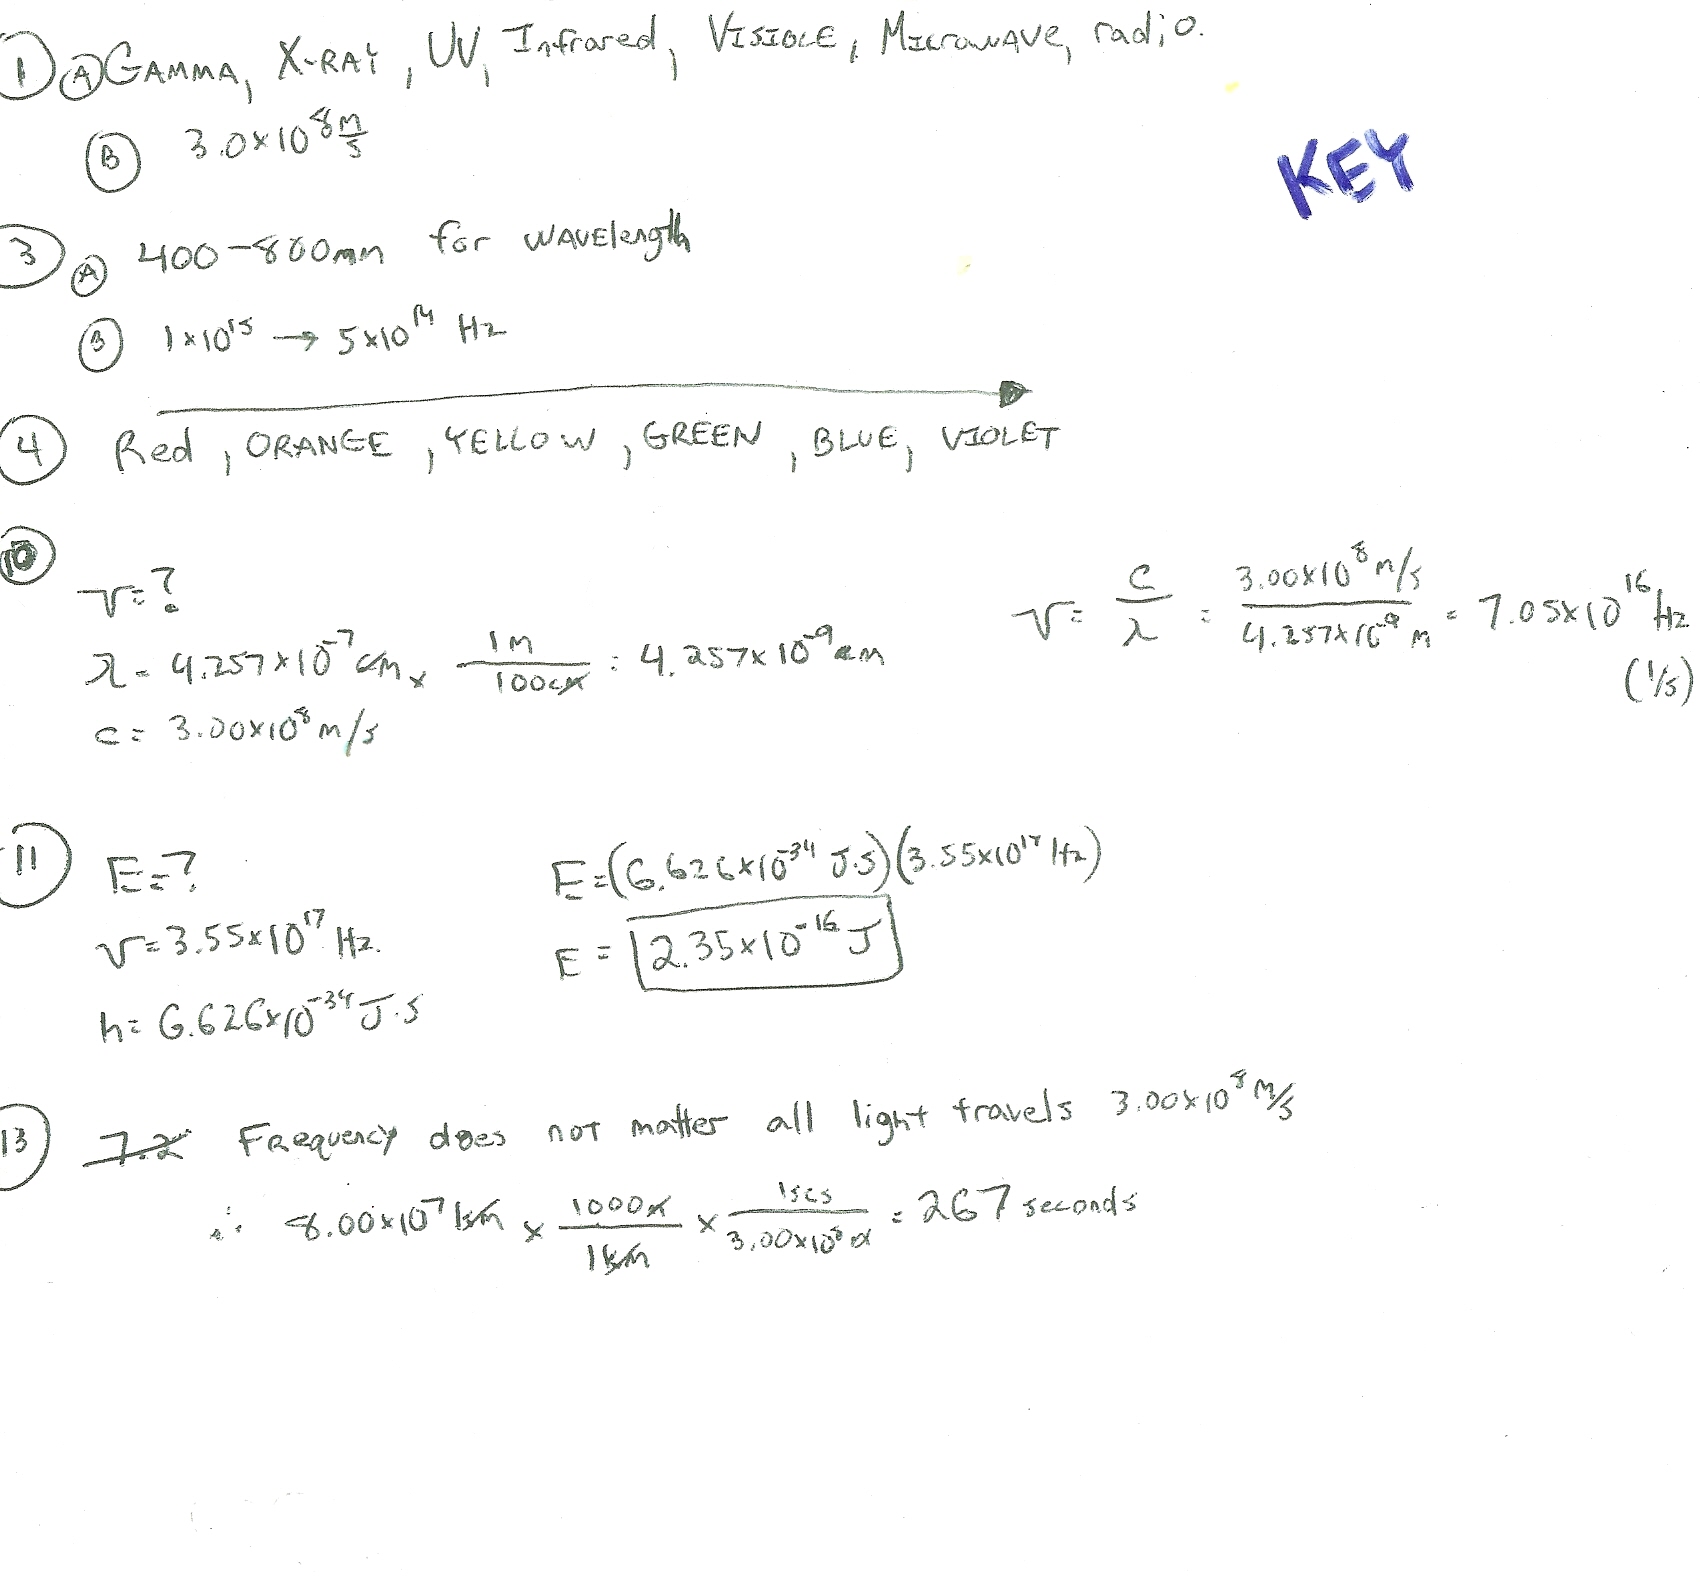 1 A GAMMA, X-RAY, UV, Infrared, VISIBLE, MICROWAVE, radio.
B 3.0x10⁸ m/s
KEY
3 A 400-800nm for WAVElength
B 1x10¹⁵ → 5x10¹⁴ Hz
4 Red, ORANGE, YELLOW, GREEN, BLUE, VIOLET
10
ν=?
λ= 4.257x10⁻⁷ cm x 1m/100cm = 4.257x10⁻⁹ m
c= 3.00x10⁸ m/s
ν= c/λ = 3.00x10⁸ m/s / 4.257x10⁻⁹ m = 7.05x10¹⁶ Hz
(1/s)
11 E=?
ν=3.55x10¹⁷ Hz.
h= 6.626x10⁻³⁴ J·s
E=(6.626x10⁻³⁴ J·s)(3.55x10¹⁷ Hz)
E = 2.35x10⁻¹⁶ J
13 7.2 Frequency does not matter all light travels 3.00x10⁸ m/s
∴ 8.00x10⁷ km x 1000m/1km x 1s/3.00x10⁸ m = 267 seconds